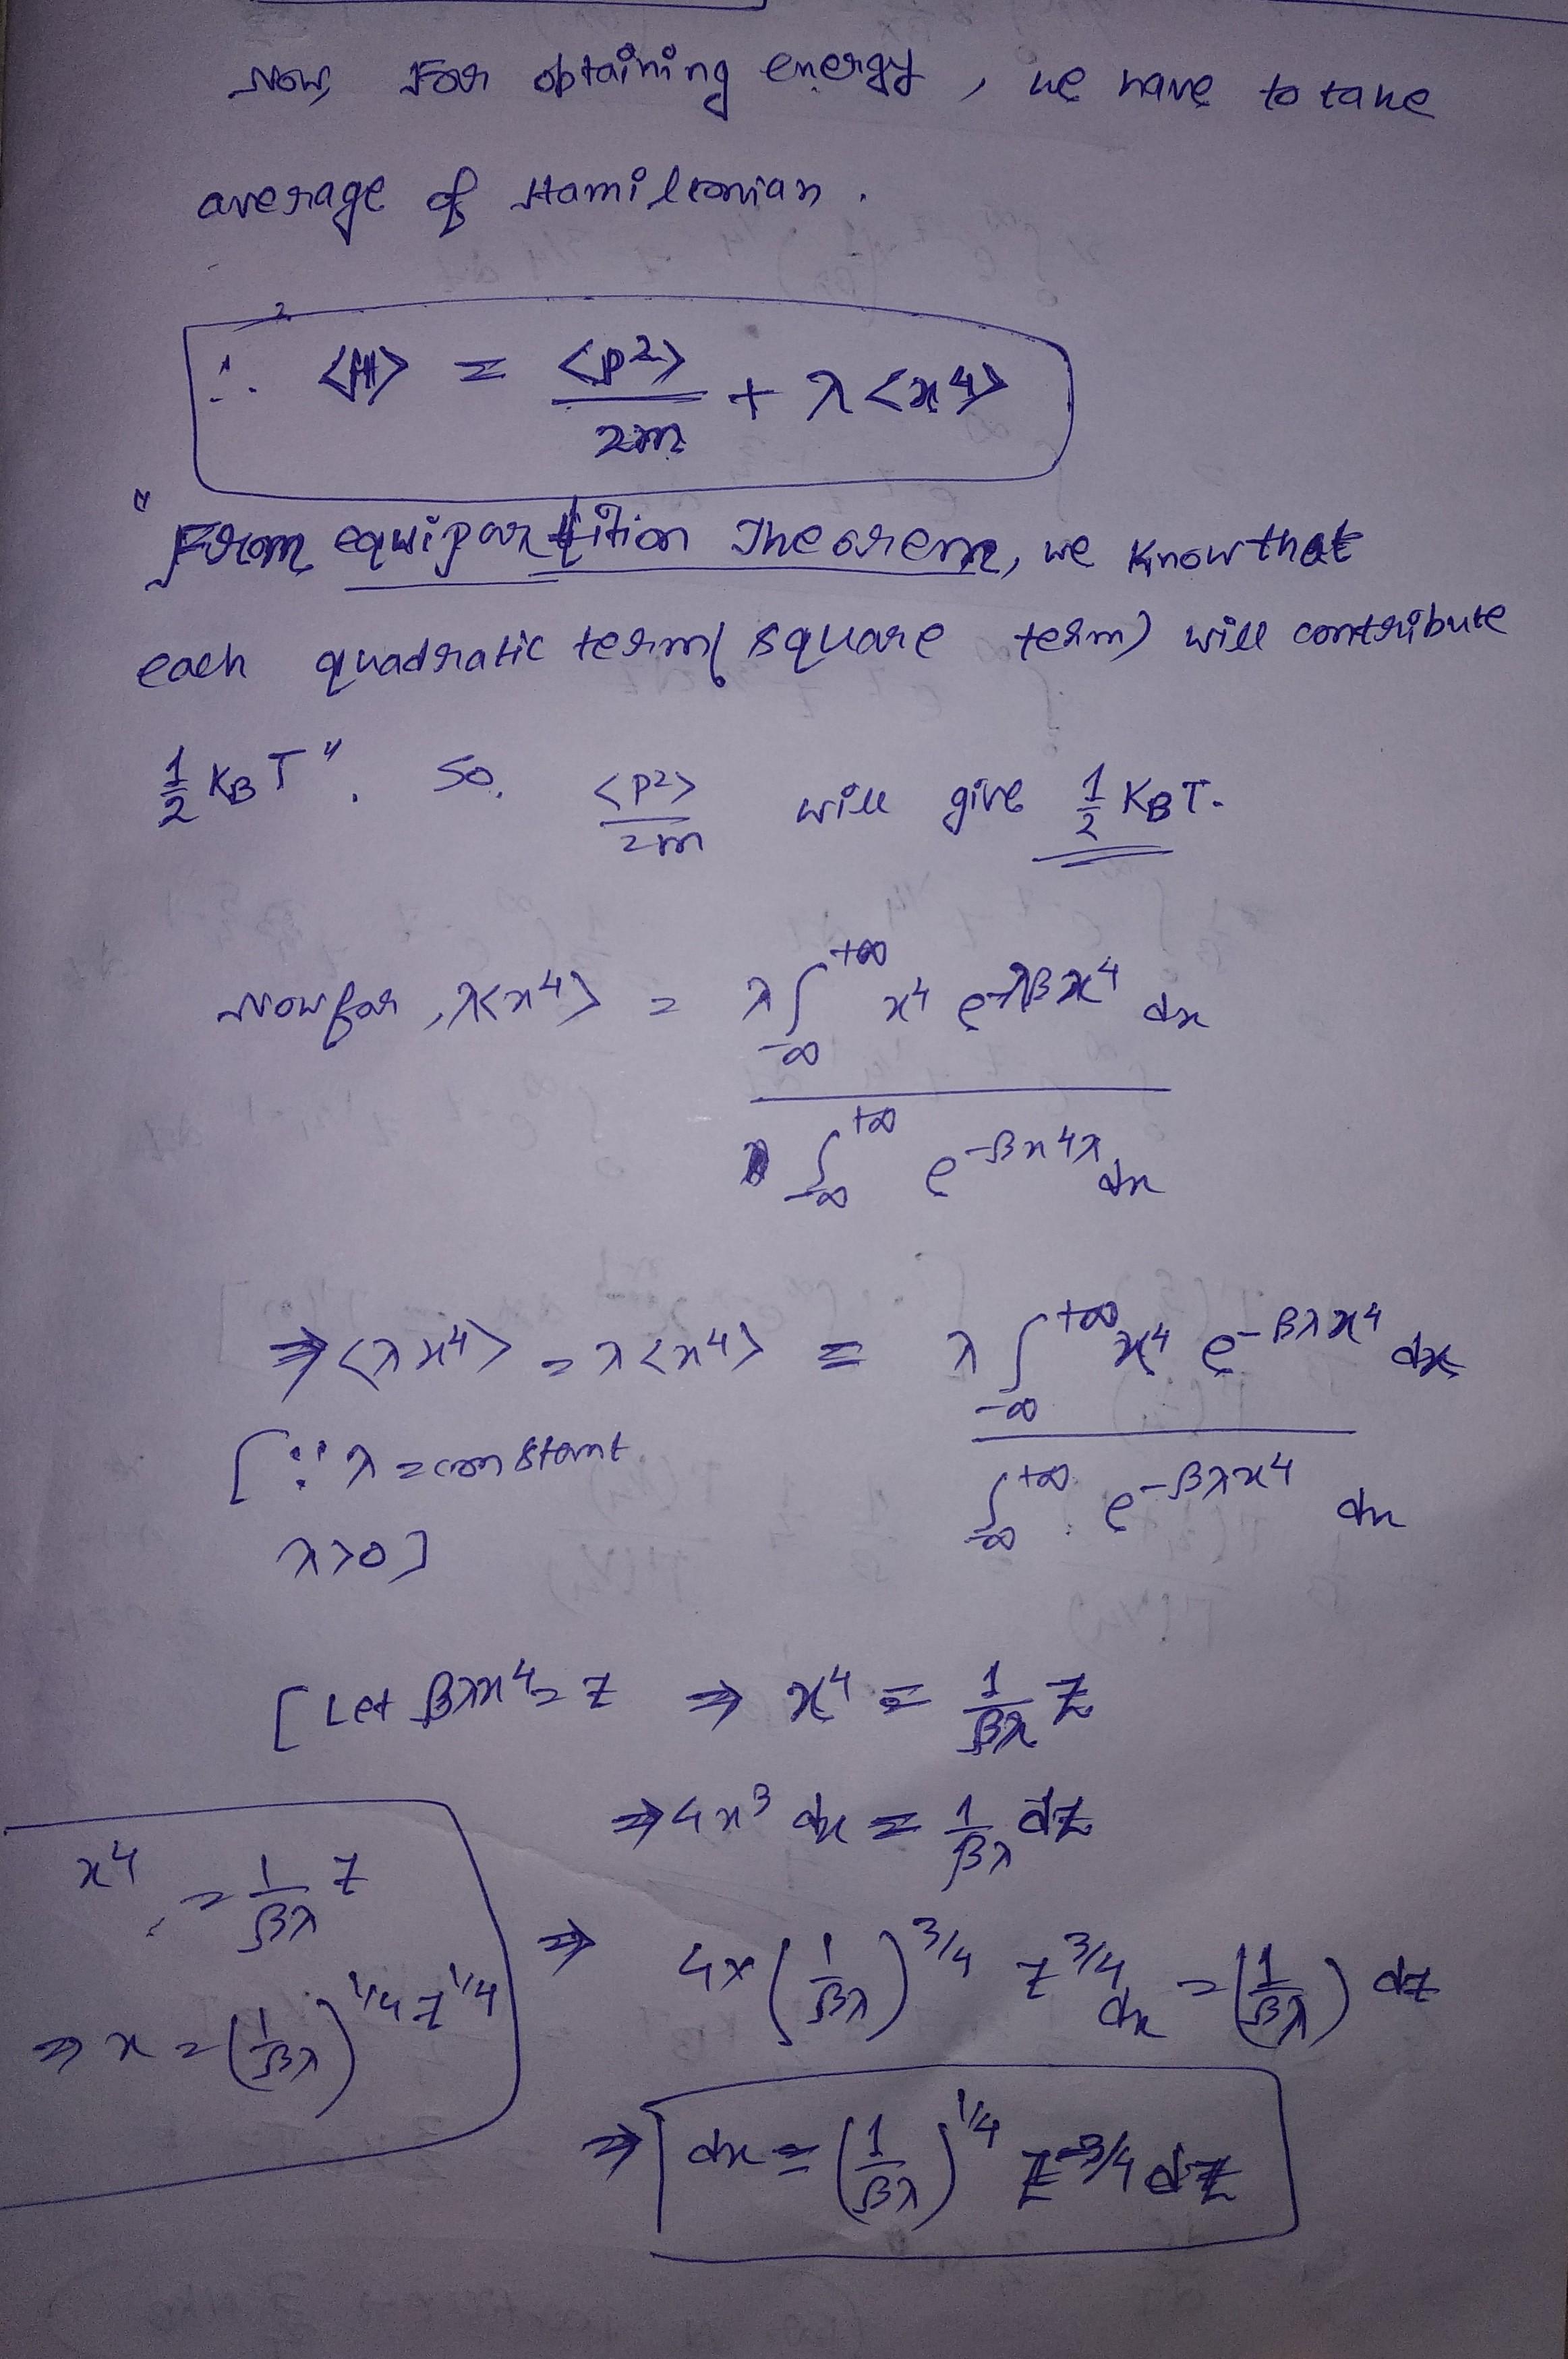 Now, For obtaining energy, we have to take
average of Hamiltonian.
∴ <H> = <p²>/2m + λ<x⁴>
"From equipartition Theorem, we know that
each quadratic term( square term) will contribute
1/2 K_B T". So, <p²>/2m will give 1/2 K_B T.
Now for, λ<x⁴> = λ∫_{-∞}^{+∞} x⁴ e^{-λβx⁴} dx / ∫_{-∞}^{+∞} e^{-βx⁴λ} dx
⇒ <λx⁴> = λ<x⁴> = λ∫_{-∞}^{+∞} x⁴ e^{-βλx⁴} dx / ∫_{-∞}^{+∞} e^{-βλx⁴} dx
[∵ λ = constant
λ>0]
[Let βλx⁴ = z ⇒ x⁴ = 1/βλ z
⇒ 4x³ dx = 1/βλ dz
x⁴ = 1/βλ z
⇒ x = (1/βλ)^{1/4} z^{1/4}
⇒ 4×(1/βλ)^{3/4} z^{3/4} dx = (1/βλ) dz
⇒ dx = (1/βλ)^{1/4} z^{-3/4} dz